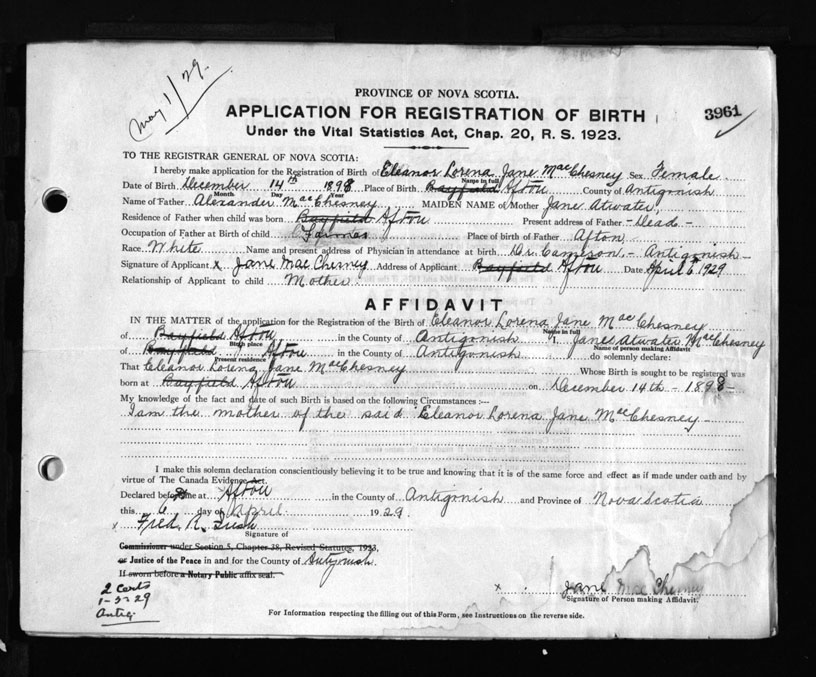 May 1/29.
PROVINCE OF NOVA SCOTIA.
APPLICATION FOR REGISTRATION OF BIRTH
3961
Under the Vital Statistics Act, Chap. 20, R. S. 1923.
TO THE REGISTRAR GENERAL OF NOVA SCOTIA:
I hereby make application for the Registration of Birth of Eleanor Lorena Jane MacChesney Sex Female
Name in full
Date of Birth December 14th 1898 Place of Birth Bayfield Afton County of Antigonish
Month Day Year
Name of Father Alexander MacChesney MAIDEN NAME of Mother Jane Atwater
Residence of Father when child was born Bayfield Afton Present address of Father - Dead -
Occupation of Father at Birth of child Farmer Place of birth of Father Afton
Race White Name and present address of Physician in attendance at birth Dr. Cameron - Antigonish -
Signature of Applicant x Jane MacChesney Address of Applicant Bayfield Afton Date April 6 1929
Relationship of Applicant to child Mother
AFFIDAVIT
IN THE MATTER of the application for the Registration of the Birth of Eleanor Lorena Jane MacChesney
Name in full
of Bayfield Afton in the County of Antigonish I, Jane Atwater MacChesney
Birth place Name of person making Affidavit
of Bayfield Afton in the County of Antigonish do solemnly declare:
Present residence
That Eleanor Lorena Jane MacChesney Whose Birth is sought to be registered was
born at Bayfield Afton on December 14th - 1898 -
My knowledge of the fact and date of such Birth is based on the following Circumstances :—
I am the mother of the said Eleanor Lorena Jane MacChesney -
I make this solemn declaration conscientiously believing it to be true and knowing that it is of the same force and effect as if made under oath and by
virtue of The Canada Evidence Act.
Declared before me at Afton in the County of Antigonish and Province of Nova Scotia
this 6 day of April 1929.
x Fred R.
Signature of
Commissioner under Section 5, Chapter 38, Revised Statutes, 1923,
or Justice of the Peace in and for the County of Antigonish.
If sworn before a Notary Public affix seal.
2 Certs
1-5-29
Antig.
x Jane MacChesney
Signature of Person making Affidavit.
For Information respecting the filling out of this Form, see Instructions on the reverse side.